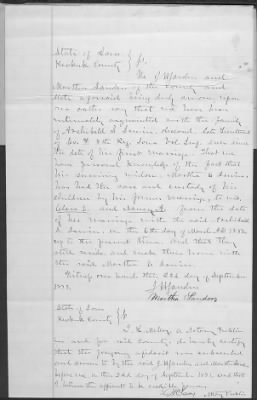 State of Iowa
Keokuk County } ss.
We J. Sanders and
Martha Sanders of the County and
State aforesaid being duly sworn upon
our oaths say that we have been
intimately acquainted with the family
of Archibald S. deceased, late Lieutenant
of Co. F. 8 Reg. Iowa Vol Inf. ever since
the date of his first marriage. That we
have personal knowledge of the fact that
his surviving widow, Martha
has had the care and custody of his
children by his former marriage, to wit,
and from the date
of her marriage with the said Archibald
S. on the day of March AD
up to the present time. And that they
still reside and make their home with
the said Martha
Witness our hand this 22d day of September
J. Sanders
Martha Sanders
State of Iowa
Keokuk County } ss.
I, a Notary Public
in and for said County, do hereby certify
that the foregoing affidavit was subscribed
and sworn to by the said J. Sanders and Martha Sanders
before me, on this 22d day of September and that
I believe the affiants to be credible persons.
Notary Public